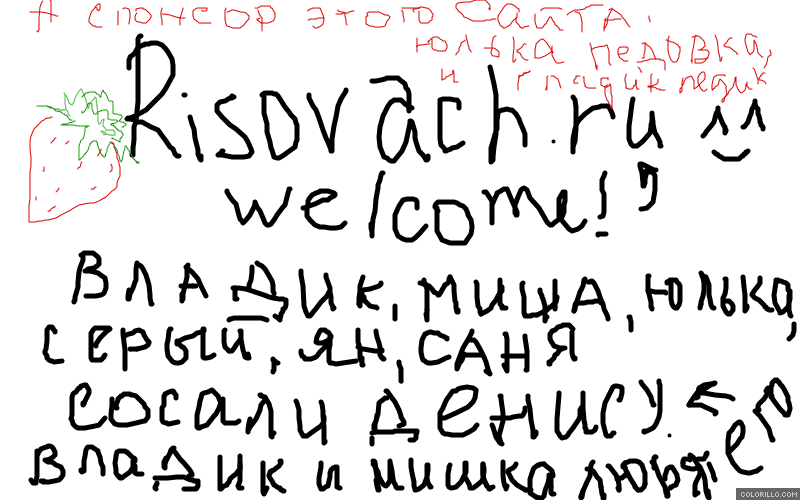 А спонсор этого Сайта.
юлька педовка,
и гладик педик
Risovach.ru ^^
welcome!
Владик, миша, юлька,
серый, ян, саня
сосали Денису. ← его
Владик и мишка любят
COLORILLO.COM